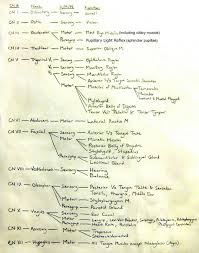 CN # Nerve S/M/B Function
CN I Olfactory Sensory Smell
CN II Optic Sensory Vision
CN III Oculomotor Motor Most Eye Muscles (including ciliary muscle)
Pupillary Light Reflex (sphincter pupillae)
CN IV Trochlear Motor Superior Oblique M.
CN V Trigeminal V1 Sensory
V2 Sensory Maxillary Region
V3 Sensory Mandibular Region
Motor
Mylohyoid
Anterior Belly of Digastric
Tensor Veli Palatini & Tensor Tympani
CN VI Abducens Motor Lateral Rectus M.
CN VII Facial Sensory Anterior 2/3 Tongue Taste
Motor Muscles of Facial Expression
Posterior Belly of Digastric
Stylohyoid, Stapedius
Parasympathetic Submandibular & Sublingual Gland
Lacrimal Gland
CN VIII Vestibulocochlear Sensory Hearing
Balance
CN IX Sensory Posterior 1/3 Tongue Taste & Sensation
Tonsil, Pharynx, Middle Ear
Motor Stylopharyngeus
Parasympathetic Parotid Gland
CN X Vagus Sensory Ear Canal
Motor
Parasympathetic
CN XI Accessory Motor
CN XII Hypoglossal Motor All Tongue Muscles except Palatoglossus (Vagus)